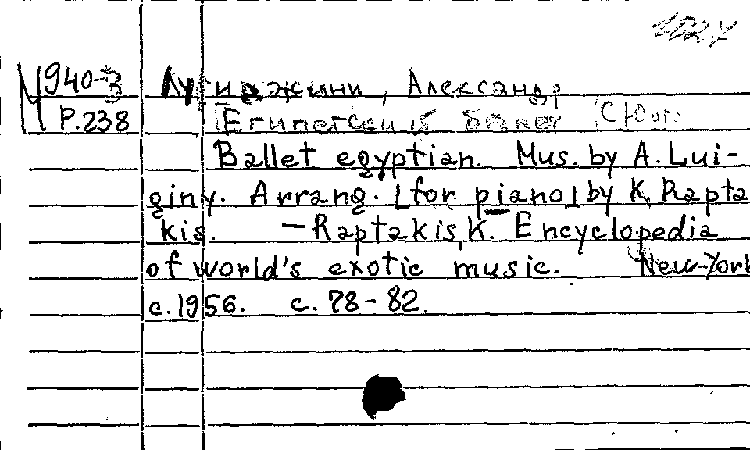 1027
М940-3 Луиджини, Александр
Р.238 Египетский балет
Ballet egyptian. Mus. by A. Lui-
giny. Arrang. [for piano] by K. Rapta
kis. — Raptakis, K. Encyclopedia
of world's exotic music. New-York
c.1956. c. 78-82.